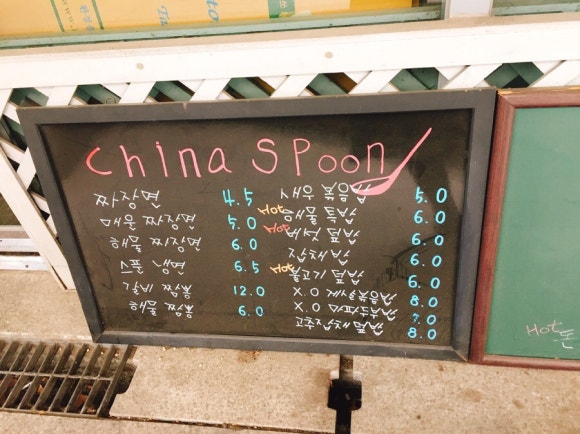 China Spoon
짜장면 4.5
매운 짜장면 5.0
해물 짜장면 6.0
스푼 냉면 6.5
갈비 짬뽕 12.0
해물 짬뽕 6.0
새우 볶음밥 5.0
Hot 해물 덮밥 6.0
Hot 버섯 덮밥 6.0
잡채밥 6.0
Hot 불고기 덮밥 6.0
X.O 게살볶음밥 8.0
X.O 마파두부밥 7.0
고추잡채 덮밥 8.0
Hot 돈